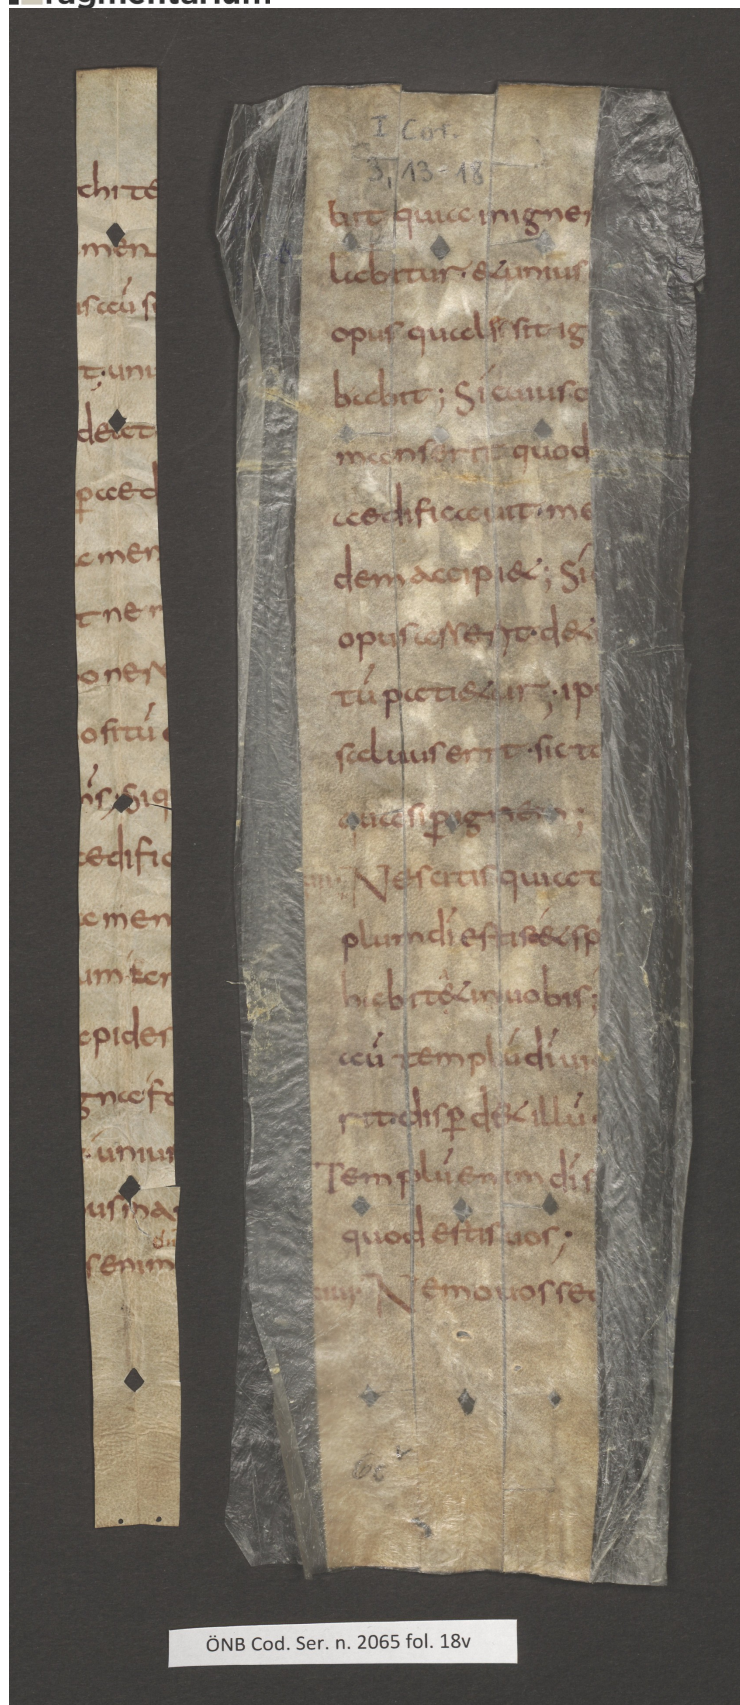 fragmentarium
chite
men
t; uni
paed
amen
t ne n
ones
ositū
aedific
amen
um fen
apides
gna fo
uniu
us ma
di
s enim
I Cor.
3, 13-18
bit quia in igne
labitur · & unius
opus quale sit ig
babit ; Si cuius o
manserit quod
aedificauit · me
dem accipi& ; Si
opus arserit · de&
tū pati&ur ; ip
saluus erit · sic ta
quasi p ignem ;
Nescitis quia t
plum di estis & sp
habitat in uobis ;
aū templū di ui
rit · disp d& illū
Templū enim di s
quod estis uos ;
Nemo uos sed
ÖNB Cod. Ser. n. 2065 fol. 18v